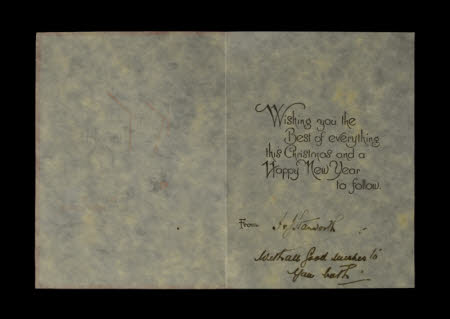 Wishing you the
Best of everything
this Christmas and a
Happy New Year
to follow.
From
With all Good wishes to
You both